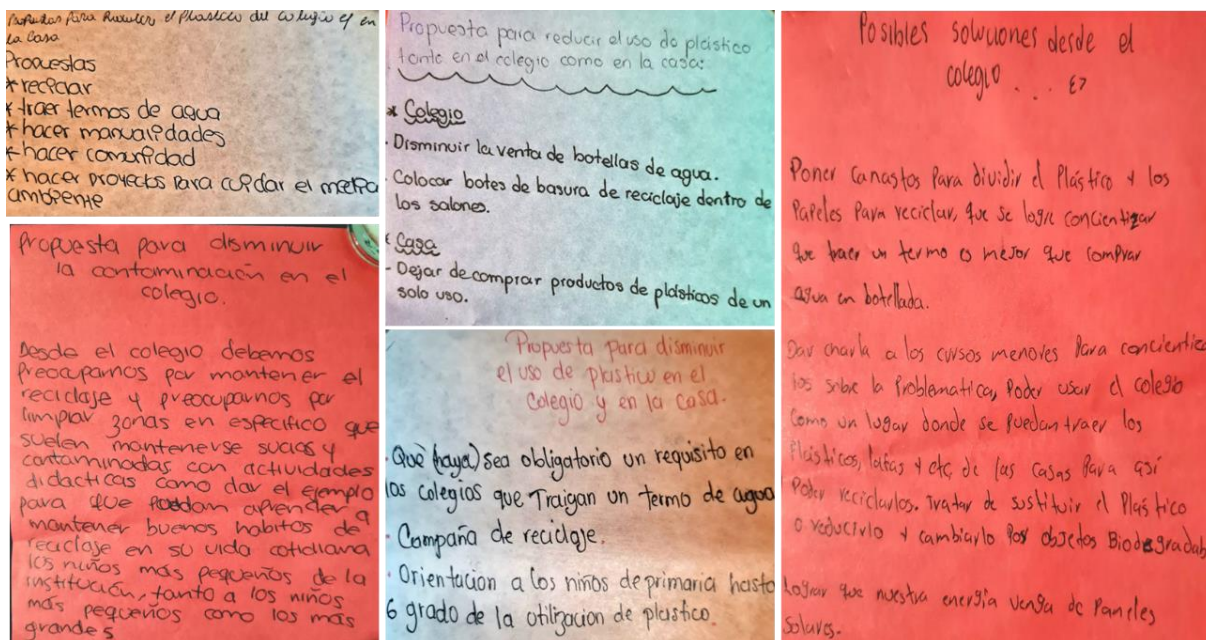 Propuestas para Reducir el plastico del colegio y en
la casa
Propuestas
* reciclar
* traer termos de agua
* hacer manualidades
* hacer comunidad
* hacer proyectos para cuidar el medio
ambiente
Propuesta para disminuir
la contaminación en el
colegio.
Desde el colegio debemos
preocuparnos por mantener el
reciclaje y preocuparnos por
limpiar zonas en especifico que
suelen mantenerse sucias y
contaminadas con actividades
didacticas como dar el ejemplo
para que puedan aprender a
mantener buenos habitos de
reciclaje en su vida cotidiana
los niños más pequeños de la
institución, tanto a los niños
más pequeños como los más
grandes
Propuesta para reducir el uso de plástico
tanto en el colegio como en la casa:
* Colegio
- Disminuir la venta de botellas de agua.
- Colocar botes de basura de reciclaje dentro de
los salones.
* Casa
- Dejar de comprar productos de plásticos de un
solo uso.
Propuesta para disminuir
el uso de plastico en el
Colegio y en la casa.
· Que (haya) sea obligatorio un requisito en
los colegios que Traigan un termo de agua
· Campaña de reciclaje.
· Orientacion a los niños de primaria hasta
6 grado de la utilizacion de plastico.
Posibles soluciones desde el
colegio...
Poner canastos Para dividir el Plástico y los
Papeles Para reciclar, que se logre concientizar
que traer un termo es mejor que comprar
agua en botellada.
Dar charla a los cursos menores Para concientiza
los sobre la Problematica, Poder usar el colegio
como un lugar donde se Puedan traer los
Plásticos, latas y etc, de las casas Para así
Poder reciclarlos. Tratar de sustituir el Plástico
o reducirlo y cambiarlo Por objetos Biodegradab
Lograr que nuestra energía venga de Paneles
Solares.